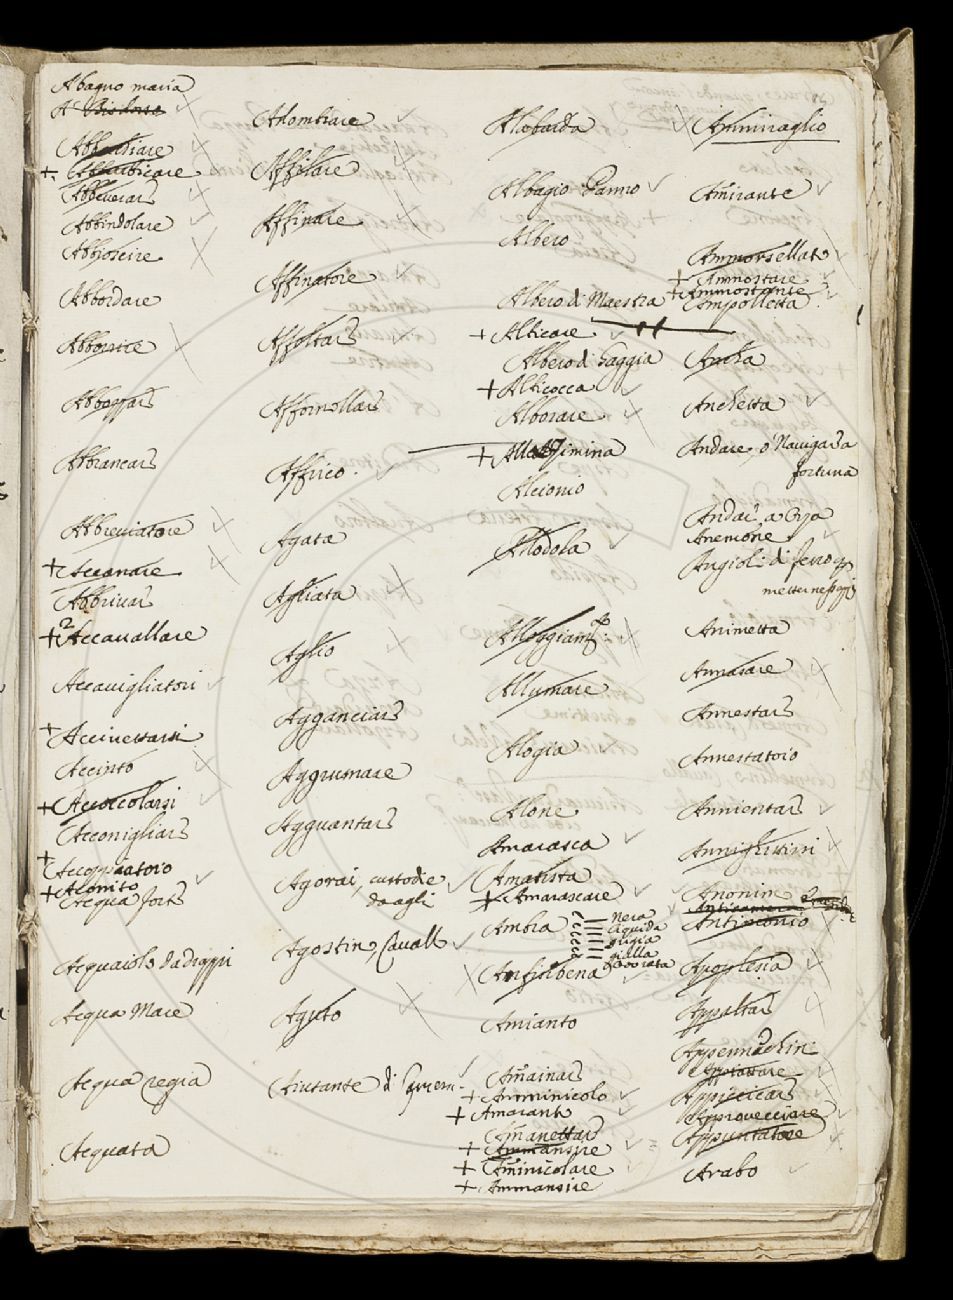 Abagno maria
A Bisdosso
Abbachiare
+ Abbarbicare
Abbeverars
Abbindolare
Abbioscire
Abbordare
Abborrire
Abbrancars
Abbreviatore
+ Accanare
Abbrivar
+ Accavallare
Accavigliatori
+ Accivettarsi
Accinto
+ Accoccolarsi
Acconigliars
+ Accoppiatoio
+ Aconito
Acqua forts
Acqua Mare
Acqua regia
Acquata
Adombrare
Affilare
Affinare
Affinatore
Affoltars
Affornellars
Affrico
Agata
Agliata
Aglio
Agganciars
Aggrumare
Agguantars
Agorai, custodie
da agli
Agostin, Cavall
Aguto
Aiutante di
Alabarda
Albagio Panno
Albero
Albero di Maestra
+ Albicare
Albero di Gaggia
+ Albicocca
Alborare
Alcionio
Allodola
Alloggiam.to
Allumare
Alogia
Alone
Amarasca
Amatista
+ Amarascare
Ambra
Nera
Liquida
grigia
gialla
Odorata
Anfisibena
Amianto
Am̃ainars
+ Amminicolo
+ Amaranto
Am̃anettar
+ Ammansire
+ Am̃inicolare
+ Ammansire
Ammiraglio
Am̃irante
Ammorsellato
+ Ammostare
+ Ammostante
Ampolletta
Ancha
Anchetta
Andare, ò Navigar a
fortuna
Andar' a Orza
Anemone
Angioli di ferro p
metter ne pezzi
Animetta
Annasare
Annestars
Annestatoio
Annientars
Annighittini
Anonin
Antimonio
Apoplesia
Appaltars
Appennechin
Appiccicars
Approvecciare
Appuntatore
Arabo